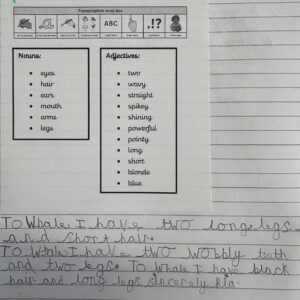 Transcription must dos
ABC
.!?
Nouns:
eyes
hair
ears
mouth
arms
legs
Adjectives:
two
wavy
straight
spikey
shining
powerful
pointy
long
short
blonde
blue
To Whale I have two long legs
and short hair.
To Whale I have two wobbly teeth
and two legs. To Whale I have black
hair and long legs sincerely